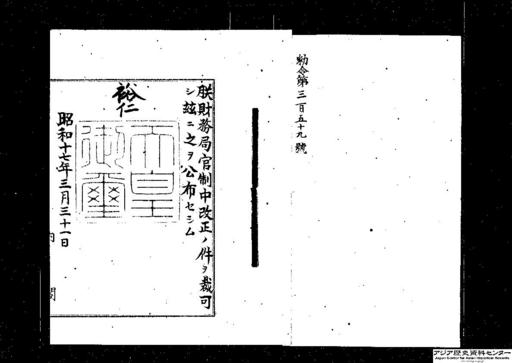 勅令第三百五十九號
朕財務局官制中改正ノ件ヲ裁可
シ玆ニ之ヲ公布セシム
裕仁
天皇御璽
昭和十七年三月三十一日
内閣
アジア歴史資料センター
Japan Center for Asian Historical Records